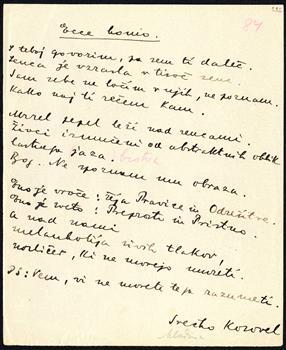 84
Ecce homo.
S teboj govorim, pa sem ti daleč.
Senca je vzrasla v tisoč senc.
Sam sebe ne ločim v njih, ne poznam.
Kako naj ti rečem kam.
Mrzel pepel leži nad sencami.
Živci izmučeni od abstraktnih oblik
lastnega jaza.
Bog. Ne poznam mu obraza.
Eno je vroče: Žeja Pravice in Odrešitve.
Eno je sveto: Preprosto in Pristno.
A nad nami
melanholija sivih tlakov,
norišnic, ki ne morejo umreti.
PS: Vem, vi ne morete tega razumeti.
Srečko Kosovel